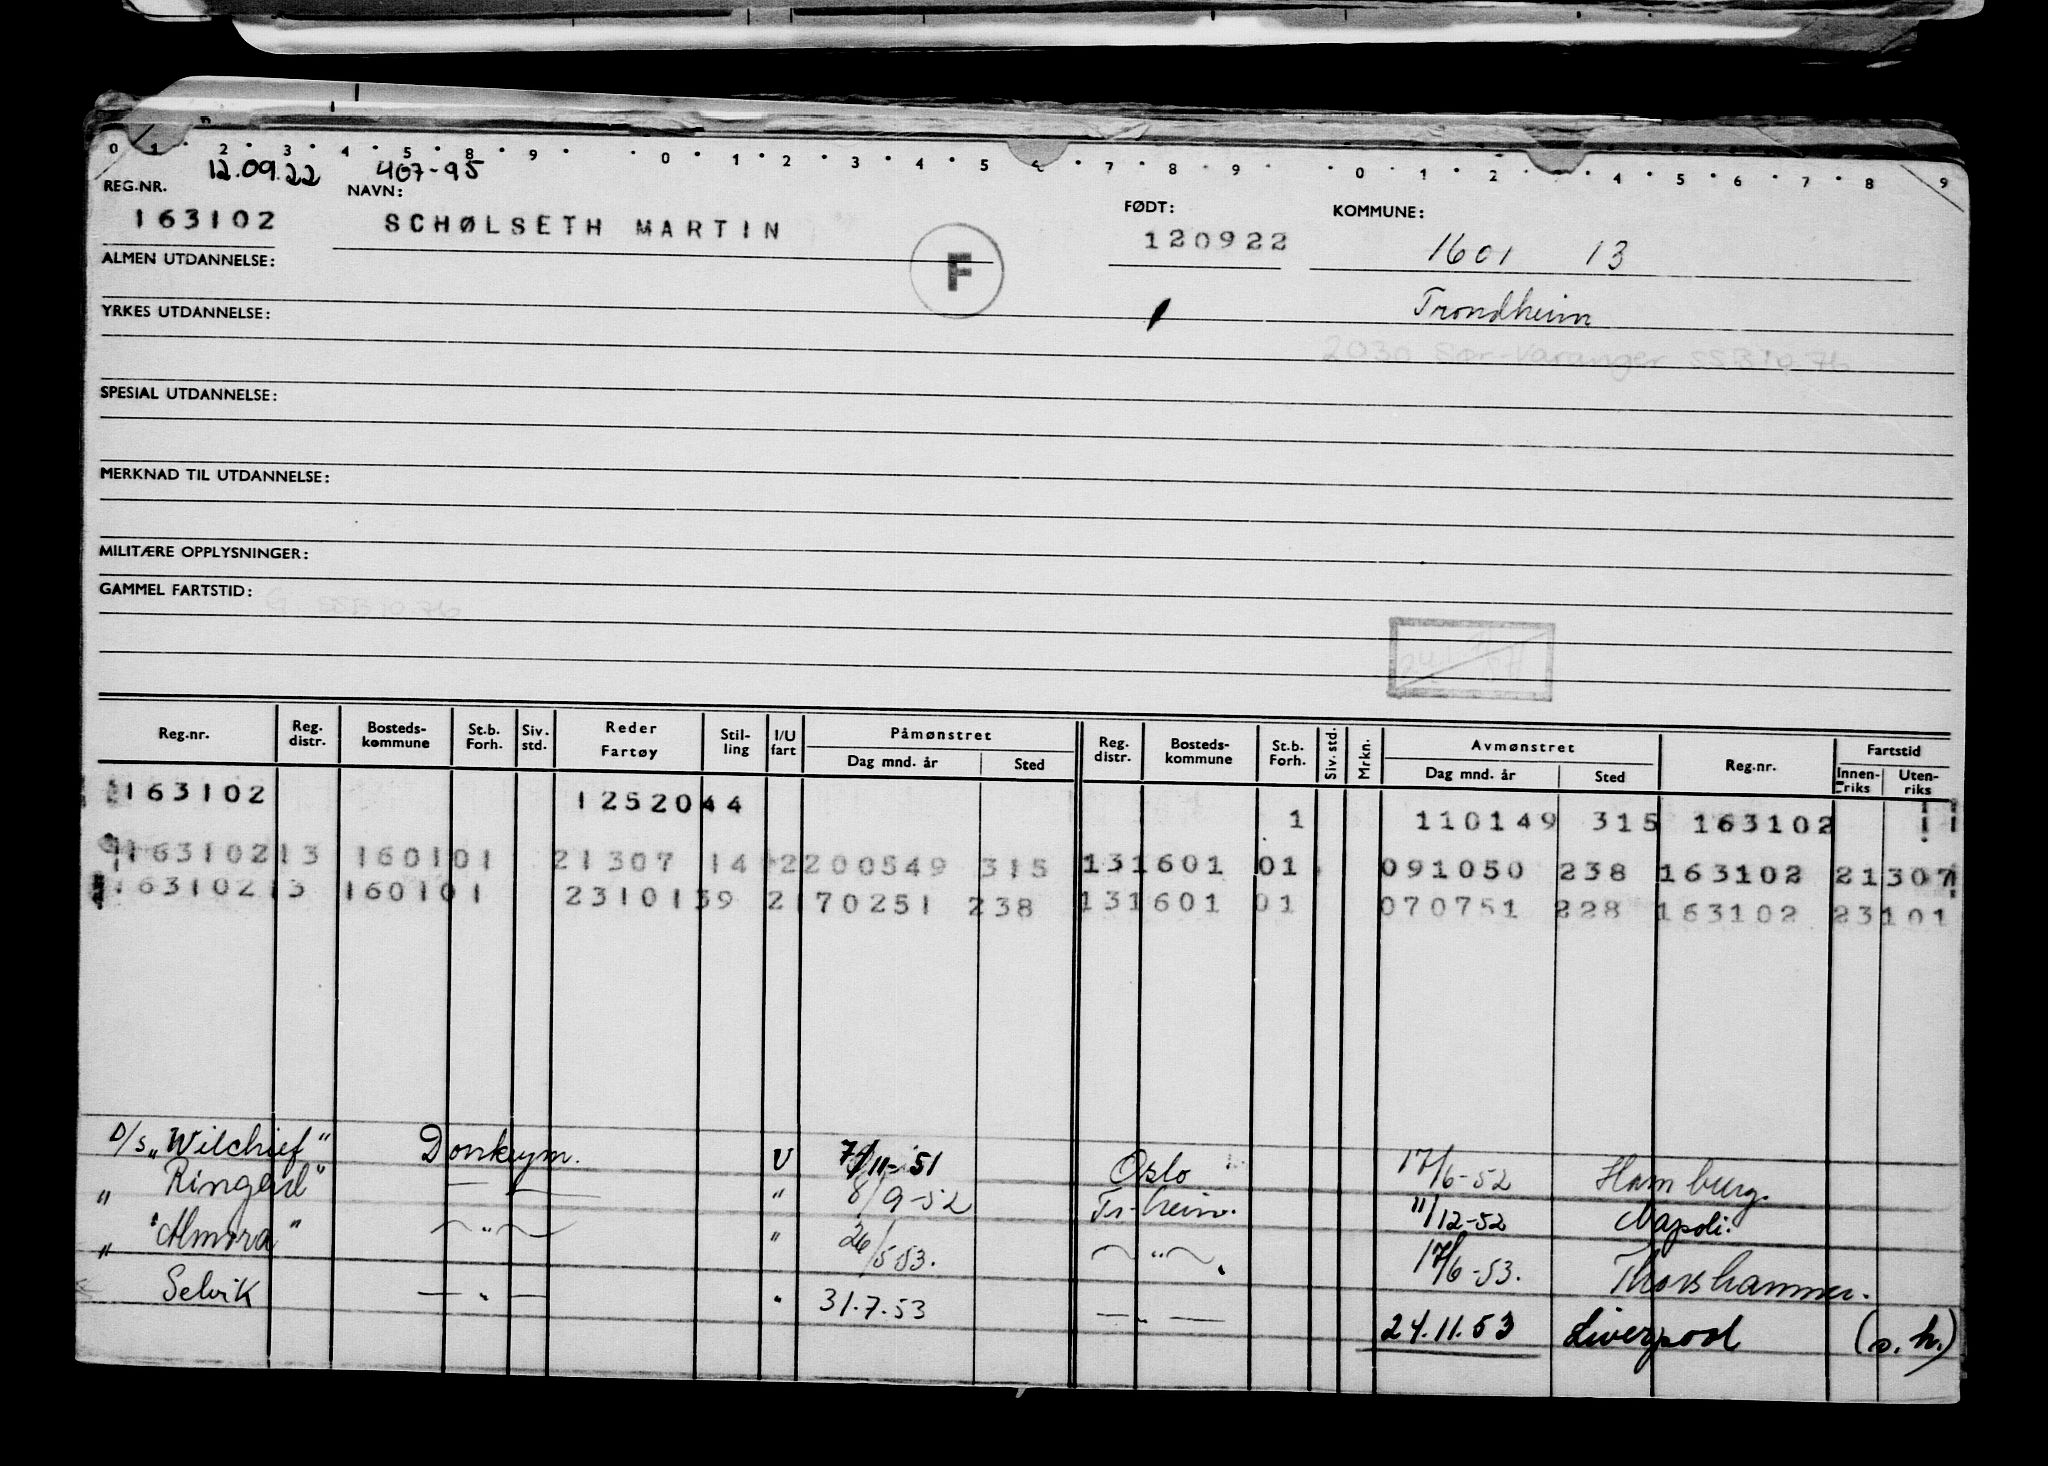 0 1 2 3 4 5 8 9 0 1 2 3 4 5 6 7 8 9 0 1 2 4 5 6 7 8 9
12.09.22 407-95
REG.NR. NAVN: FØDT: KOMMUNE:
163102 SCHØLSETH MARTIN 120922 1601 13
F
ALMEN UTDANNELSE:
Trondheim
YRKES UTDANNELSE:
2030 Sør-Varanger SSB 10.76
SPESIAL UTDANNELSE:
MERKNAD TIL UTDANNELSE:
MILITÆRE OPPLYSNINGER:
GAMMEL FARTSTID:
SSB 10.76
Reg.nr. Reg. distr. Bosteds-kommune St.b. Forh. Siv. std. Reder Fartøy Stil-ling I/U fart Påmønstret Dag mnd. år Sted Reg. distr. Bosteds-kommune St.b. Forh. Siv. std. Mrkn. Avmønstret Dag mnd. år Sted Reg.nr. Fartstid Innen-riks Uten-riks
163102 1252044 1 110149 315 163102
16310213 160101 21307 14 2200549 315 131601 01 091050 238 163102 21307
16310213 160101 2310139 2170251 238 131601 01 070751 228 163102 23101
D/S "Wilchief" Donkeym. U 7/11-51 Oslo 17/6-52 Hamburg.
" Ringerd" — " 8/9-52 Tr.heim. 11/12-52 Napoli.
" "Almora" " " 26/5-53. " 17/6-53. Thorshammer.
Selvik " " 31.7.53 — 24.11.53 Liverpool (s.h.)